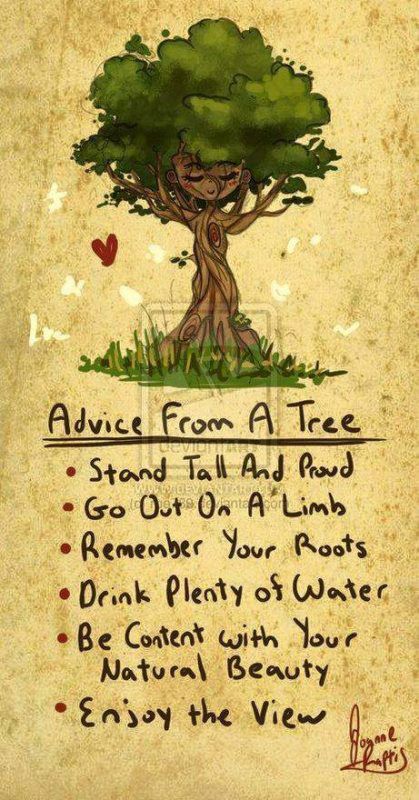 Advice From A Tree
deviantART
Stand Tall And Proud
Go Out On A Limb
Remember Your Roots
Drink Plenty of Water
Be Content with Your
Natural Beauty
Enjoy the View
Joanne